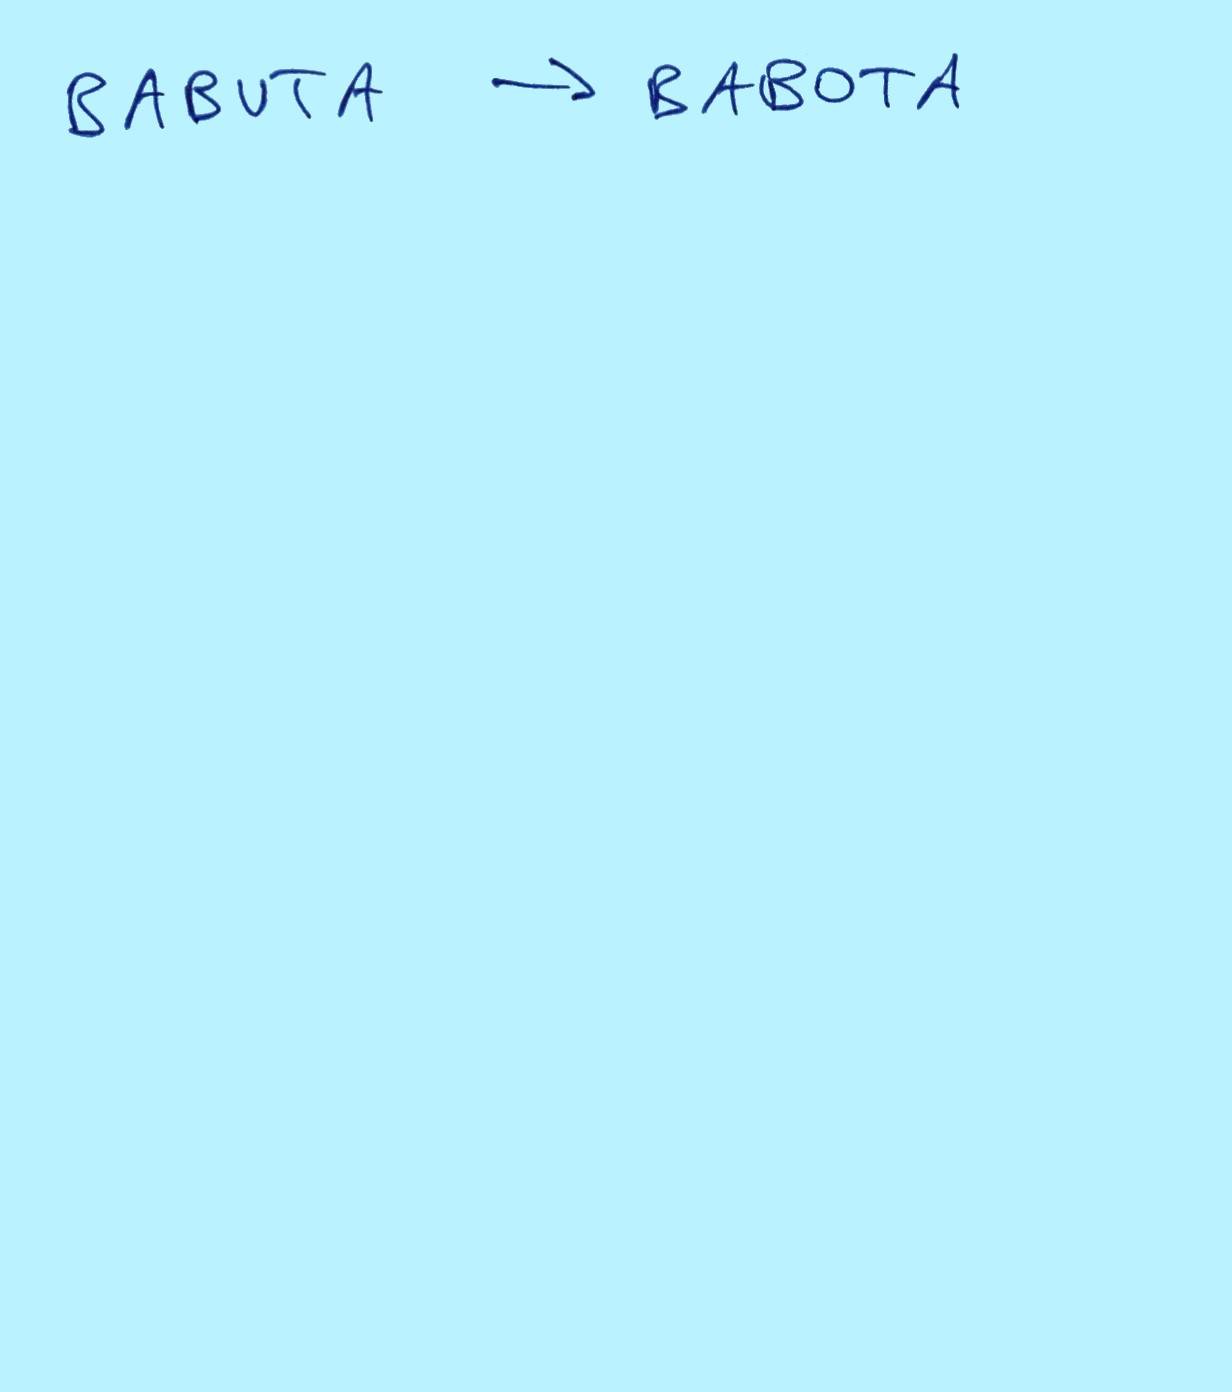 BABUTA → BABOTA